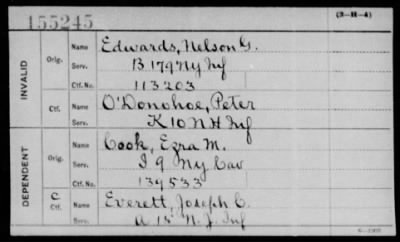 155245 (3-H-4)
INVALID Orig. Name Edwards, Nelson G.
Serv. B 179 Ny Inf
Ctf. No. 113203
Ctf. Name O'Donohoe, Peter
Serv. K 10 N H Inf
DEPENDENT Orig. Name Cook, Ezra M.
Serv. I 9 Ny Cav
Ctf. No. 139533
C. Ctf. Name Everett, Joseph C.
Serv. A 15 N. J. Inf